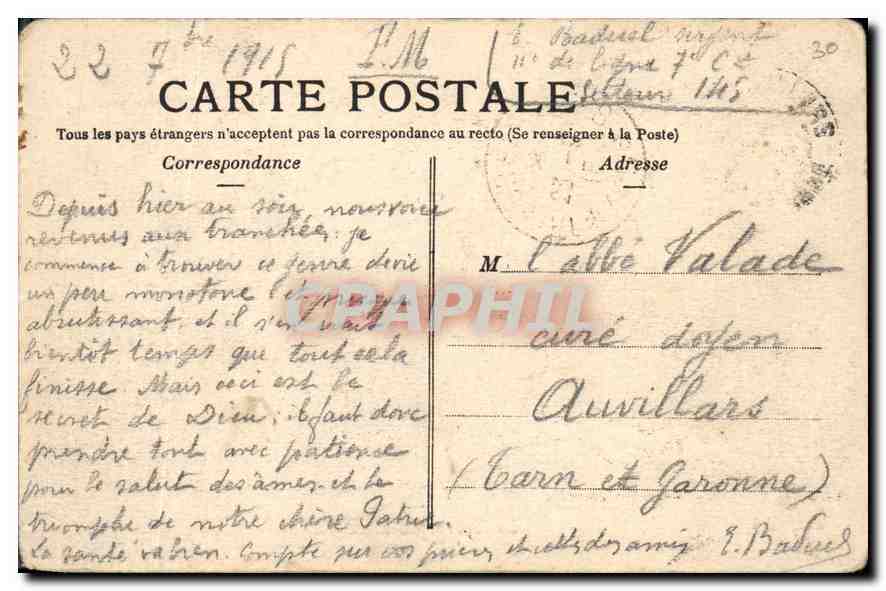 22 7bre 1915 F.M
E. Baduel sergent
11e de ligne 7e Cie
Secteur 145
30
CARTE POSTALE
Tous les pays étrangers n'acceptent pas la correspondance au recto (Se renseigner à la Poste)
Correspondance
Adresse
Depuis hier au soir, nous voici
revenus aux tranchées. je
commence à trouver ce genre de vie
un peu monotone et presque
abrutissant, et il s'en vait
bientôt temps que tout cela
finisse. Mais ceci est le
secret de Dieu; il faut donc
prendre tout avec patience
pour le salut des âmes et le
triomphe de notre chère Patrie.
La santé va bien. Compte sur vos prières et celles des amis E. Baduel
M. l'abbé Valade
curé doyen
Auvillars
(Tarn et Garonne)
CPAPHIL